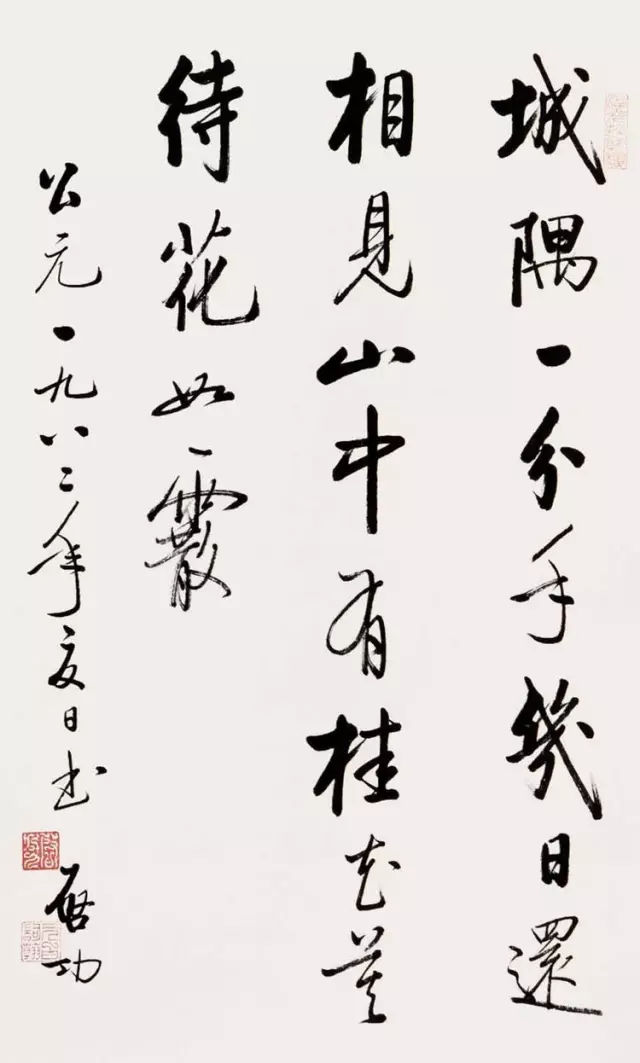 城隅一分手幾日還
相見山中有桂花莫
待花如霰
公元一九八二年夏日书
启功